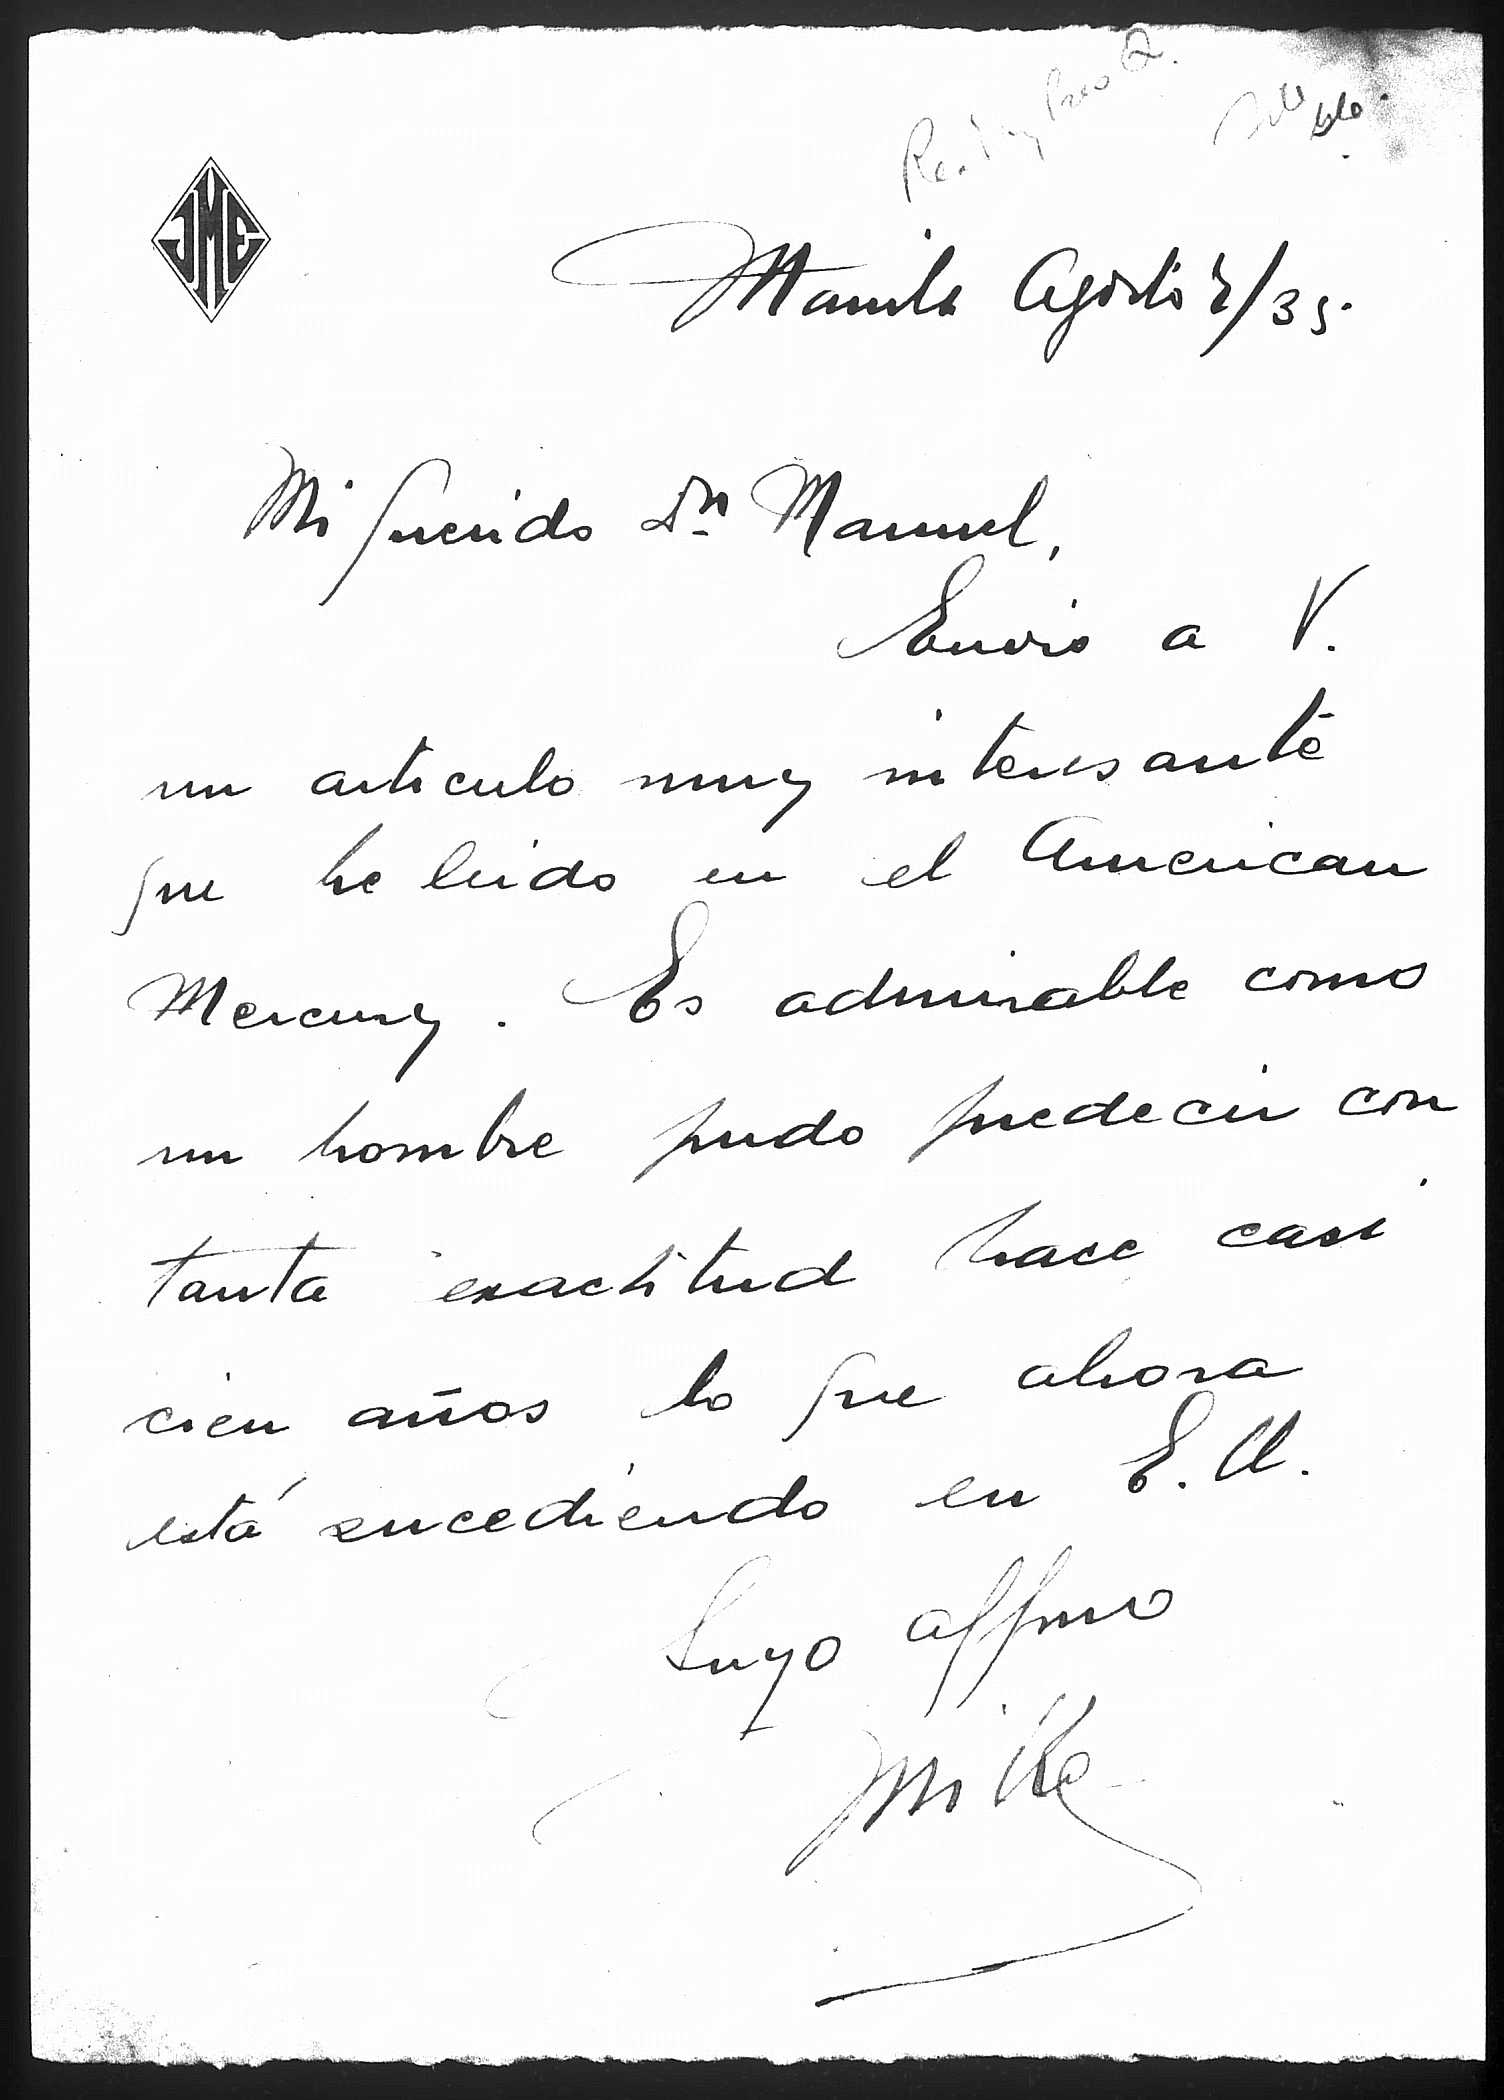 Pres Q.
JME
Manila Agosto /35.
Mi querido Dn Manuel,
Envio a V.
un articulo muy interesante
que he leido en el American
Mercury. Es admirable como
un hombre pudo predecir con
tanta exactitud hace casi
cien años lo que ahora
está sucediendo en E.U.
Suyo affmo
Mike